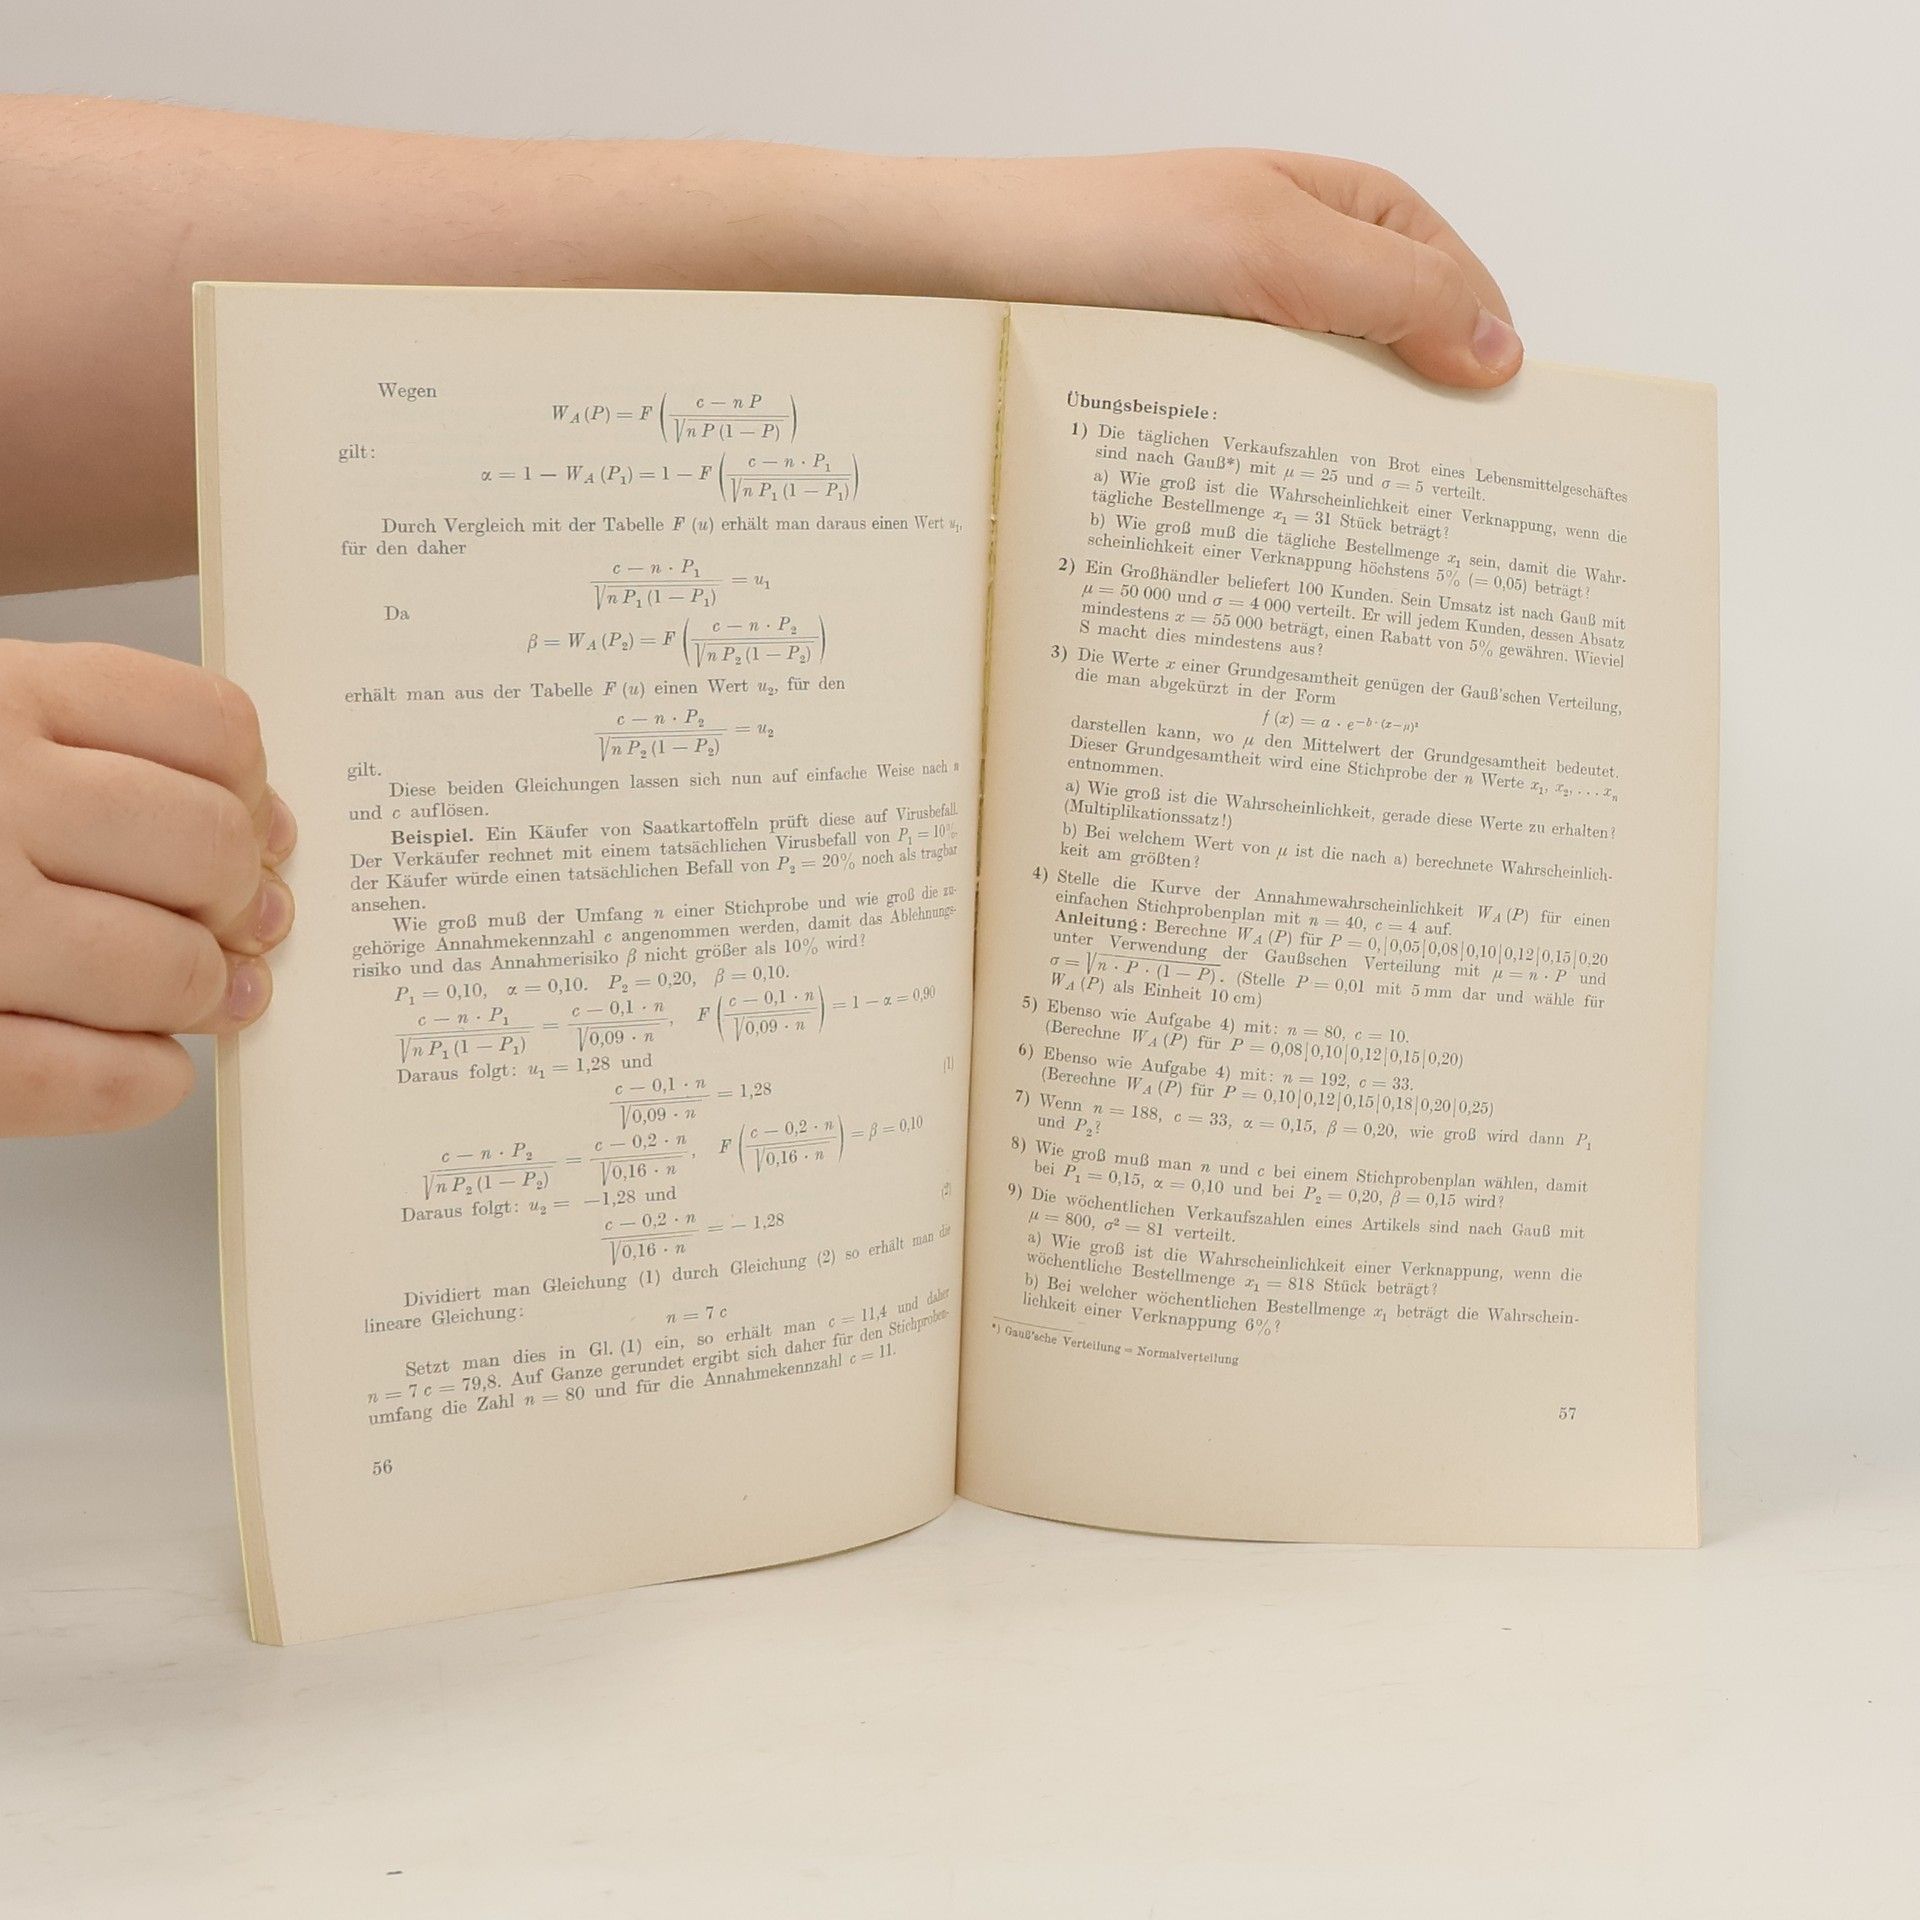 Wegen
W_A (P) = F ( (c — n P) / √(n P (1 — P)) )
gilt:
α = 1 — W_A (P₁) = 1 — F ( (c — n · P₁) / √(n P₁ (1 — P₁)) )
Durch Vergleich mit der Tabelle F (u) erhält man daraus einen Wert u₁,
für den daher
(c — n · P₁) / √(n P₁ (1 — P₁)) = u₁
Da
β = W_A (P₂) = F ( (c — n · P₂) / √(n P₂ (1 — P₂)) )
erhält man aus der Tabelle F (u) einen Wert u₂, für den
(c — n · P₂) / √(n P₂ (1 — P₂)) = u₂
gilt.
Diese beiden Gleichungen lassen sich nun auf einfache Weise nach n
und c auflösen.
Beispiel. Ein Käufer von Saatkartoffeln prüft diese auf Virusbefall.
Der Verkäufer rechnet mit einem tatsächlichen Virusbefall von P₁ = 10%,
der Käufer würde einen tatsächlichen Befall von P₂ = 20% noch als tragbar
ansehen.
Wie groß muß der Umfang n einer Stichprobe und wie groß die zu-
gehörige Annahmekennzahl c angenommen werden, damit das Ablehnungs-
risiko und das Annahmerisiko β nicht größer als 10% wird?
P₁ = 0,10, α = 0,10. P₂ = 0,20, β = 0,10.
(c — n · P₁) / √(n P₁ (1 — P₁)) = (c — 0,1 · n) / √(0,09 · n), F ( (c — 0,1 · n) / √(0,09 · n) ) = 1 — α = 0,90
Daraus folgt: u₁ = 1,28 und
(c — 0,1 · n) / √(0,09 · n) = 1,28 (1)
(c — n · P₂) / √(n P₂ (1 — P₂)) = (c — 0,2 · n) / √(0,16 · n), F ( (c — 0,2 · n) / √(0,16 · n) ) = β = 0,10
Daraus folgt: u₂ = —1,28 und
(c — 0,2 · n) / √(0,16 · n) = — 1,28 (2)
Dividiert man Gleichung (1) durch Gleichung (2) so erhält man die
lineare Gleichung:
n = 7 c
Setzt man dies in Gl. (1) ein, so erhält man c = 11,4 und daher
n = 7 c = 79,8. Auf Ganze gerundet ergibt sich daher für den Stichproben-
umfang die Zahl n = 80 und für die Annahmekennzahl c = 11.
56
Übungsbeispiele:
1) Die täglichen Verkaufszahlen von Brot eines Lebensmittelgeschäftes
sind nach Gauß*) mit μ = 25 und σ = 5 verteilt.
a) Wie groß ist die Wahrscheinlichkeit einer Verknappung, wenn die
tägliche Bestellmenge x₁ = 31 Stück beträgt?
b) Wie groß muß die tägliche Bestellmenge x₁ sein, damit die Wahr-
scheinlichkeit einer Verknappung höchstens 5% (= 0,05) beträgt?
2) Ein Großhändler beliefert 100 Kunden. Sein Umsatz ist nach Gauß mit
μ = 50 000 und σ = 4 000 verteilt. Er will jedem Kunden, dessen Absatz
mindestens x = 55 000 beträgt, einen Rabatt von 5% gewähren. Wieviel
S macht dies mindestens aus?
3) Die Werte x einer Grundgesamtheit genügen der Gauß'schen Verteilung,
die man abgekürzt in der Form
f (x) = a · e^(—b · (x—μ)²)
darstellen kann, wo μ den Mittelwert der Grundgesamtheit bedeutet.
Dieser Grundgesamtheit wird eine Stichprobe der n Werte x₁, x₂, . . . xₙ
entnommen.
a) Wie groß ist die Wahrscheinlichkeit, gerade diese Werte zu erhalten?
(Multiplikationssatz!)
b) Bei welchem Wert von μ ist die nach a) berechnete Wahrscheinlich-
keit am größten?
4) Stelle die Kurve der Annahmewahrscheinlichkeit W_A (P) für einen
einfachen Stichprobenplan mit n = 40, c = 4 auf.
Anleitung: Berechne W_A (P) für P = 0,|0,05|0,08|0,10|0,12|0,15|0,20
unter Verwendung der Gaußschen Verteilung mit μ = n · P und
σ = √(n · P · (1 — P)). (Stelle P = 0,01 mit 5 mm dar und wähle für
W_A (P) als Einheit 10 cm)
5) Ebenso wie Aufgabe 4) mit: n = 80, c = 10.
(Berechne W_A (P) für P = 0,08|0,10|0,12|0,15|0,20)
6) Ebenso wie Aufgabe 4) mit: n = 192, c = 33.
(Berechne W_A (P) für P = 0,10|0,12|0,15|0,18|0,20|0,25)
7) Wenn n = 188, c = 33, α = 0,15, β = 0,20, wie groß wird dann P₁
und P₂?
8) Wie groß muß man n und c bei einem Stichprobenplan wählen, damit
bei P₁ = 0,15, α = 0,10 und bei P₂ = 0,20, β = 0,15 wird?
9) Die wöchentlichen Verkaufszahlen eines Artikels sind nach Gauß mit
μ = 800, σ² = 81 verteilt.
a) Wie groß ist die Wahrscheinlichkeit einer Verknappung, wenn die
wöchentliche Bestellmenge x₁ = 818 Stück beträgt?
b) Bei welcher wöchentlichen Bestellmenge x₁ beträgt die Wahrschein-
lichkeit einer Verknappung 6%?
*) Gauß'sche Verteilung = Normalverteilung
57